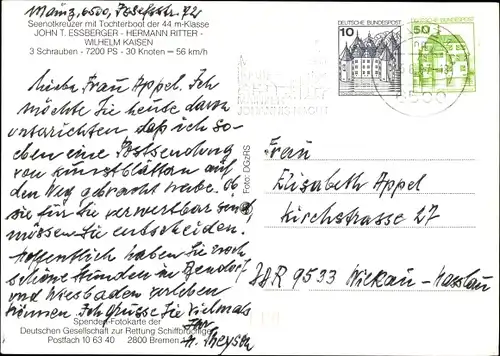 Mainz, 6500, Josefsstr. 72
Seenotkreuzer mit Tochterboot der 44 m-Klasse
JOHN T. ESSBERGER - HERMANN RITTER -
WILHELM KAISEN
3 Schrauben - 7200 PS - 30 Knoten = 56 km/h
Liebe Frau Appel. Ich
möchte Sie heute davon
unterichten daß ich so-
eben eine Postsendung
von Kunstblättern auf
den Weg gebracht habe. Ob
sie für Sie verwertbar sind,
müssen Sie entscheiden.
Hoffentlich haben Sie noch
schöne Stunden in Bendorf
und Wiesbaden erleben
können. Ich grüsse Sie vielmals
Ihr
H. Theysen
Spenden-Fotokarte der
Deutschen Gesellschaft zur Rettung Schiffbrüchiger
Postfach 10 63 40 2800 Bremen
Foto: DGzRS
DEUTSCHE BUNDESPOST
10
DEUTSCHE BUNDESPOST
50
JOHANNISNACHT
6500
Frau
Elisabeth Appel
Kirchstrasse 27
DDR 9533 Wilkau-Hasslau